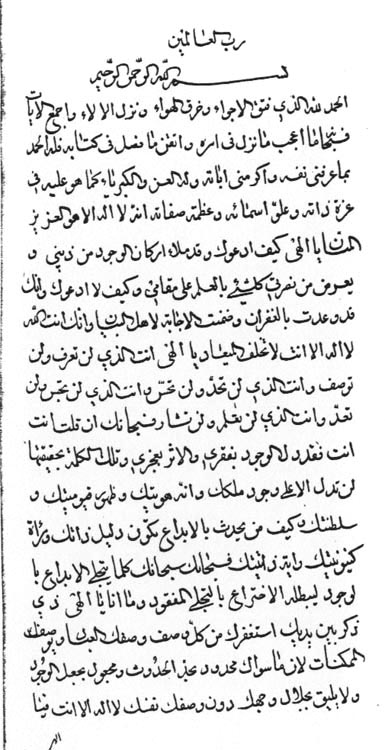 رب العالمين
بسم الله الرحمن الرحيم
الحمد لله الذي فتق الاجواء وخرق الهواء ونزل الالاء واجمع الآيات
فسبحانه ما اعجب ما نزل في امره واتقن ما فصل في كتابه فله الحمد
بما عرفني نفسه واكرمني اياته وله العز والكبرياء كما هو عليه في
عزة ذاته وعلو اسمائه وعظمة صفاته انه لا اله الا هو العزيز
المنان يا الهي كيف ادعوك وقد ملاء اركان الوجود من ذنبي و
يعرض من نفسي كلشيء بالعلم على مقامي وكيف لا ادعوك وانك
قد وعدت بالغفران وضمنت الاجابة لاهل البيان وانك انت الله
لا اله الا انت لا تخلف الميعاد يا الهى انت الذي لن تعرف ولن
توصف وانت الذي لن تحد ولن تحس وانت الذي لن تجس ولن
تعد وانت الذي لن تعلم ولن تشار فسبحانك ان قلت انت
انت فقد دل الوجود بفقري والاثر بعجزي وتلك الكلمة بحقيقتها
لن تدل الا على وجود ملكك وانه هويتك وظهور قيوميتك و
سلطنتك وكيف من يحدث بالابداع يكون دليل ذاتك ومرآة
كينونيتك واية انيتك فسبحانك سبحانك كلما يتجلى الابداع با
لوجود ليبطله الاختراع بالتجلي المفقود وما انا يا الهى ذي
ذكر بين يديك استغفرك من كل وصف وصفك العباد وبوصفك
الممكنات لان ما سواك محدود بحد الحدوث ومجهول بجعل الوجود
ولا يليق بجلال وجهك دون وصفك نفسك لا اله الا انت فينا